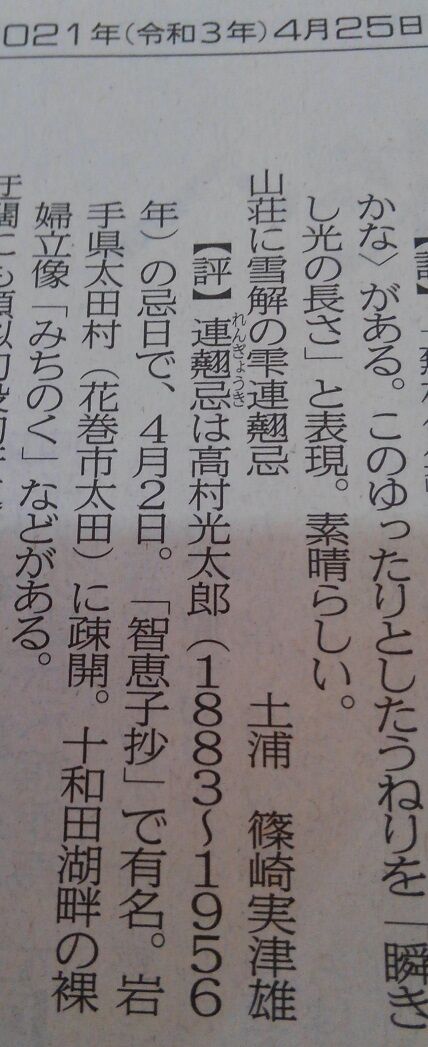 021年(令和3年)4月25日
【評】
かな〉がある。このゆったりとしたうねりを「瞬き
し光の長さ」と表現。素晴らしい。
山荘に雪解の雫連翹忌 土浦 篠崎実津雄
【評】連翹忌は高村光太郎(1883〜1956
れんぎょうき
年)の忌日で、4月2日。「智恵子抄」で有名。岩
手県太田村(花巻市太田)に疎開。十和田湖畔の裸
婦立像「みちのく」などがある。